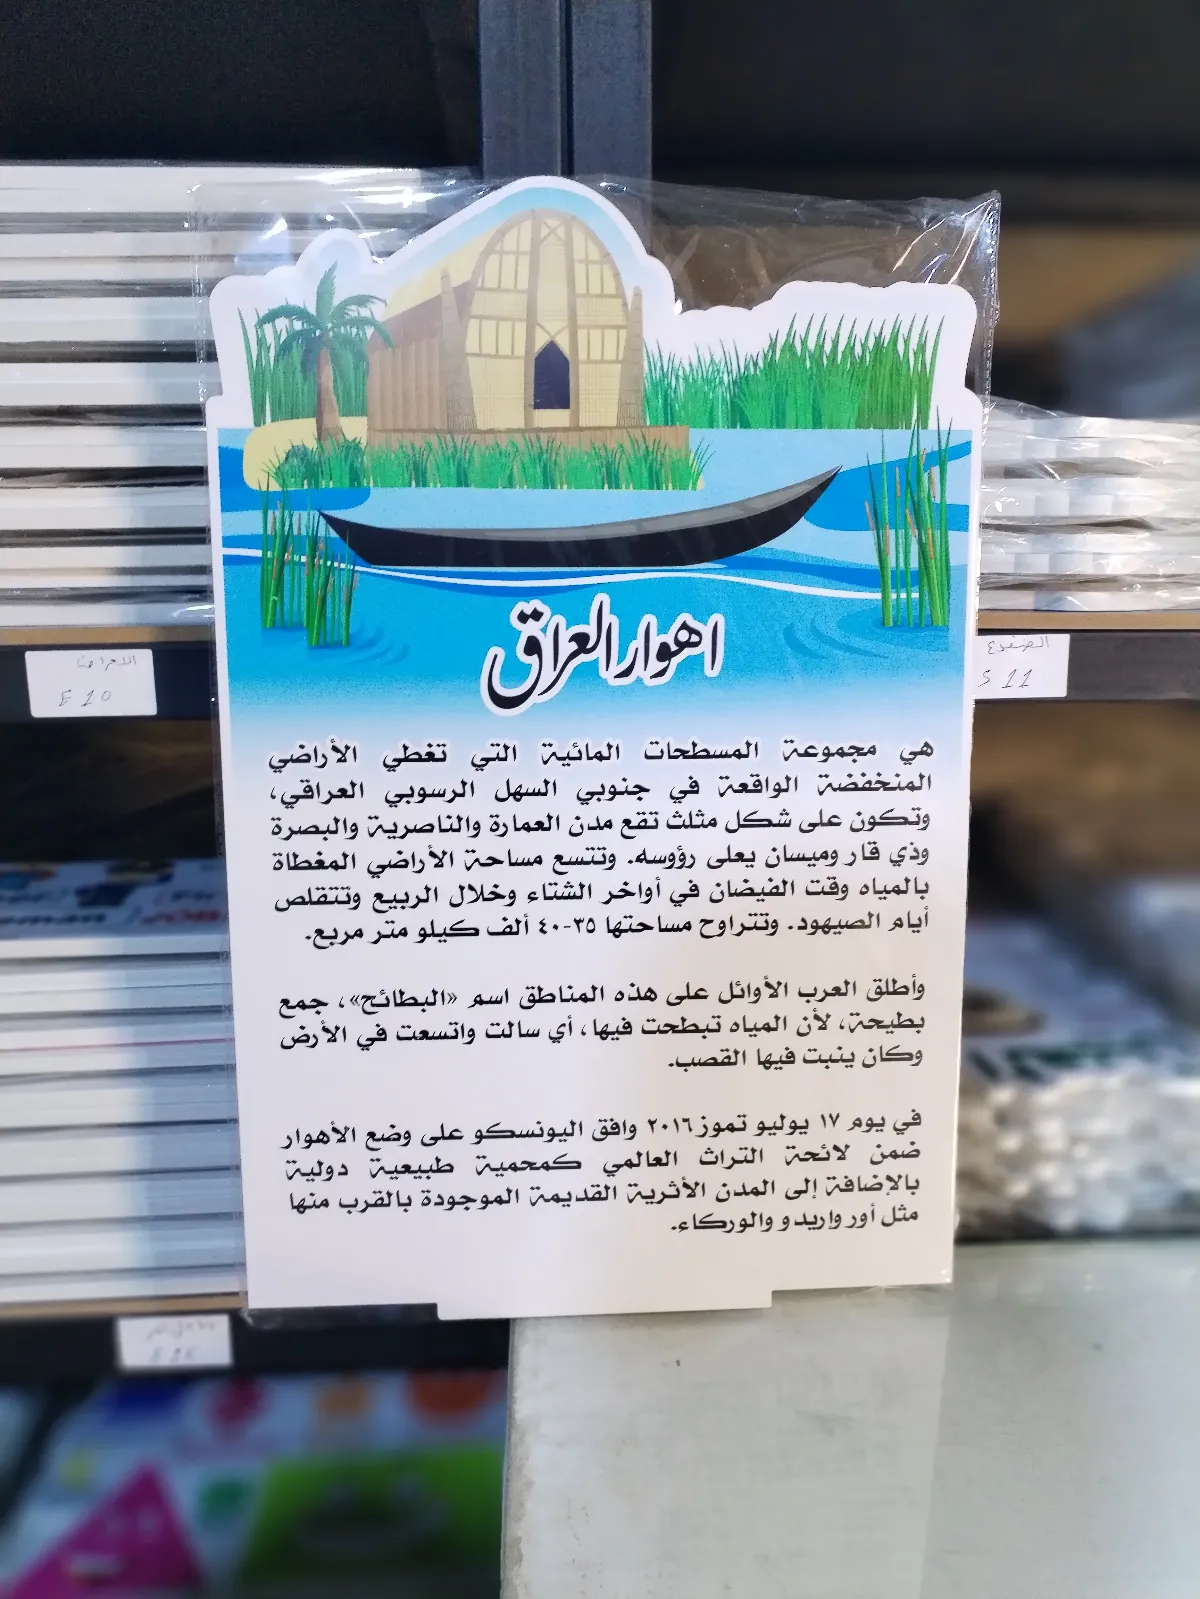 اهوار العراق
هي مجموعة المسطحات المائية التي تغطي الأراضي
المنخفضة الواقعة في جنوبي السهل الرسوبي العراقي،
وتكون على شكل مثلث تقع مدن العمارة والناصرية والبصرة
وذي قار وميسان يعلى رؤوسه. وتتسع مساحة الأراضي المغطاة
بالمياه وقت الفيضان في أواخر الشتاء وخلال الربيع وتتقلص
أيام الصيهود. وتتراوح مساحتها ٣٥-٤٠ ألف كيلو متر مربع.
وأطلق العرب الأوائل على هذه المناطق اسم «البطائح»، جمع
بطيحة، لأن المياه تبطحت فيها، أي سالت واتسعت في الأرض
وكان ينبت فيها القصب.
في يوم ١٧ يوليو تموز ٢٠١٦ وافق اليونسكو على وضع الأهوار
ضمن لائحة التراث العالمي كمحمية طبيعية دولية
بالإضافة إلى المدن الأثرية القديمة الموجودة بالقرب منها
مثل أور واريدو والوركاء.
E 10
S 11